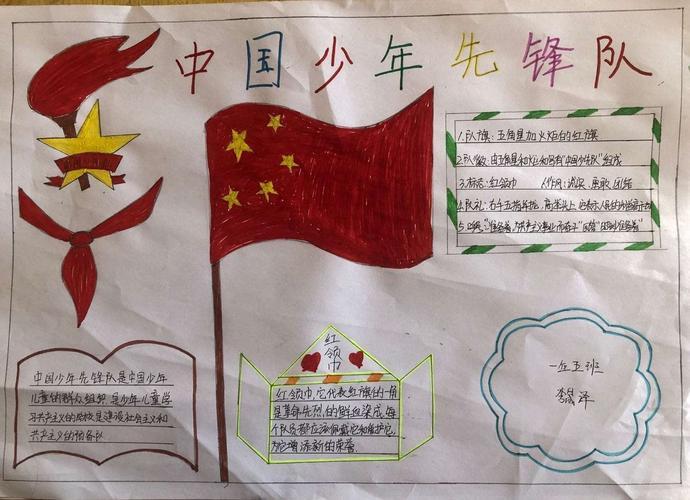 中国少年先锋队
1.队旗：五角星加火炬的红旗
2.队徽：由五角星和火炬和写有"中国少先队"组成
3.标志：红领巾 作风：诚实、勇敢、团结
4.队礼：右手五指并拢，高举头上，它表示人民的利益高于
5.口号："准备着，为共产主义事业而奋斗" "时刻准备着"
中国少年先锋队是中国少年
儿童的群众组织，是少年儿童学
习共产主义的学校，是建设社会主义和
共产主义的预备队
红领巾
红领巾，它代表红旗的一角
是革命先烈的鲜红染成，每
个队员都应该佩戴它和维护它，
为它增添新的荣誉.
一年五班
李 泽